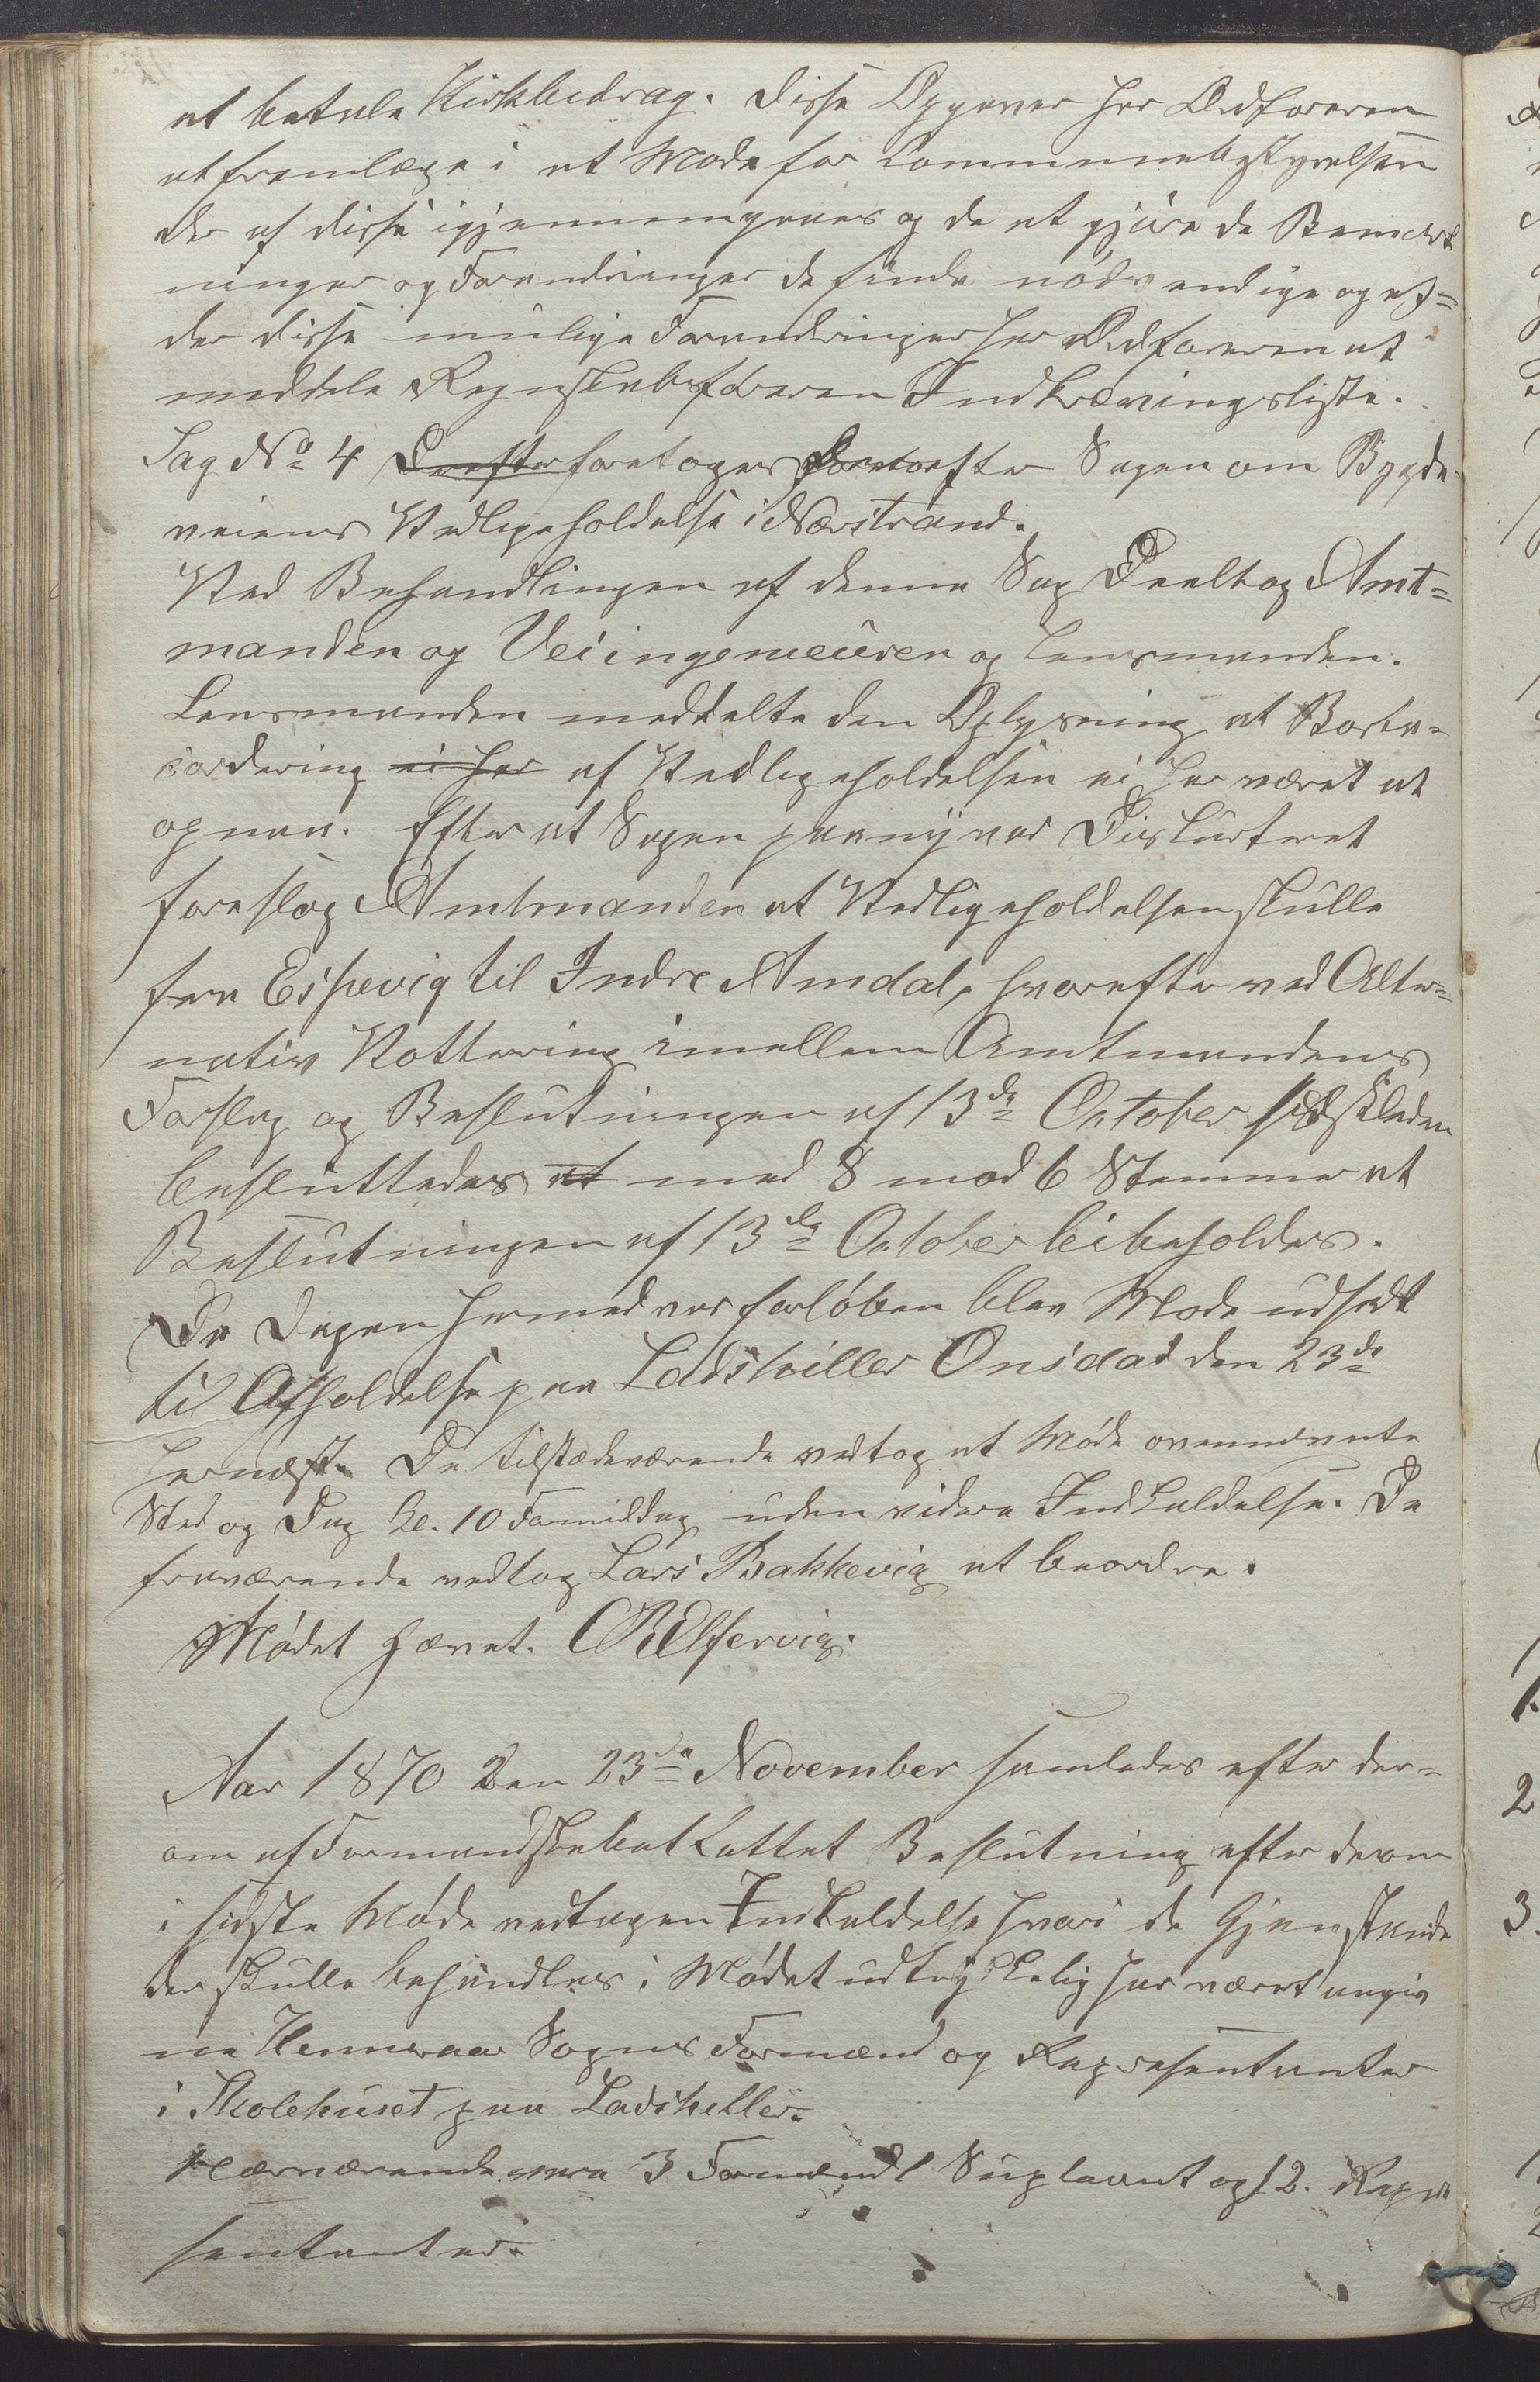 at betale Kirkbidrag. Disse Opgaver har Ordføreren
at fremlægge i et Møde for Communebestyrelsen
der af disse igjennemgaaes og de at gjøre de Bemærk
ninger og Forandringer de finde nødvendige og ef=
der disse mulige Forandringer har Ordføreren at
meddele Regnskabsføreren Indkrævingsliste.
Sag No 4 Derefter foretoges derefter Sagen om Bygde-
veienes Vedligeholdelse i Nærstrand.
Ved Behandlingen af denne Sag Deeltog Amt=
manden og Veiingenieuren og Lensmanden.
Lensmanden meddelte den Oplysning at Bortac-
cordering ei har af Vedligeholdelsen ei har været at
opnaa. Efter at Sagen paany var Diskuteret
foreslog Amtmanden at Vedligeholdelsen skulle
fra Espevig til Indre Amdal, hvorefter ved Alter=
nativ Vottering imellem Amtmandens
Forslag og Beslutningen af 13de October sidstleden
besluttedes at med 8 mod 6 Stemmer at
Beslutningen af 13de October beibeholdes.
Da Dagen hermed var forløben blev Møde udsat
til Afholdelse paa Ladstviller Onsdad den 23de
hernæst. De tilstædeværende vedtog at Møde ovennævnte
Sted og Dag kl. 10 Formiddag uden videre Indkaldelse. De
fraværende vedtog Lars Bakkevig at beordre.
Mødet hævet. CB Elfervig.
Aar 1870 den 23de November samledes efter der=
om af Formandskabet Fattet Beslutning efter derom
i sidste Møde vedtagen Indkaldelse hvori de Gjenstande
der skulle behandles i Mødet udtrykkelig har været angiv
ne Vennaar Sogns Formænd og Repræsentanter
i Skolehuset paa Ladstheller.
Nærværende vare 3 Formænd 1 Supleant og 12. Repræ
sentanter.